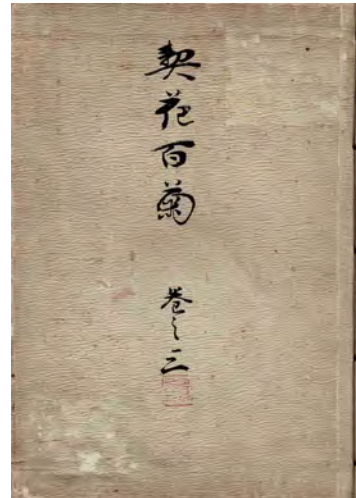 契花百菊 巻之三